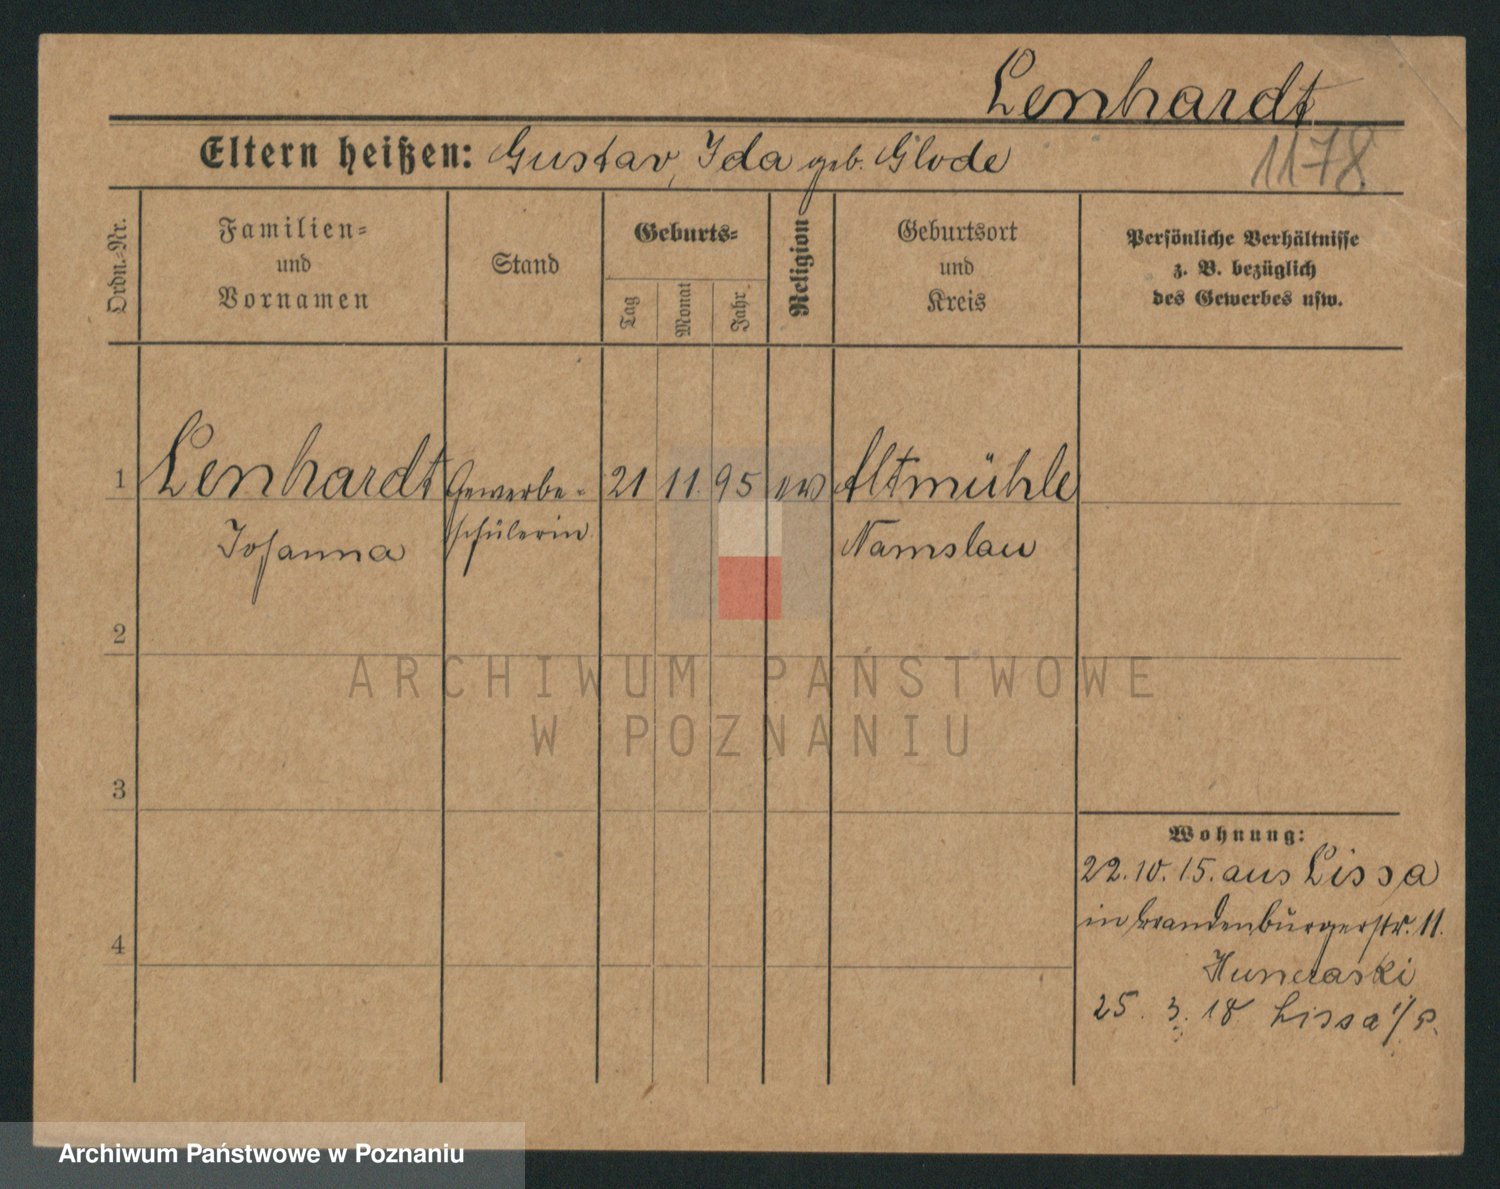 Lenhardt
Eltern heißen: Gustav, Ida geb. Glode
1178
Ordn.-Nr.
Familien-
und
Vornamen
Stand
Geburts-
Tag
Monat
Jahr
Religion
Geburtsort
und
Kreis
Persönliche Verhältnisse
z. B. bezüglich
des Gewerbes usw.
1 Lenhardt Gewerbe- 21 11. 95 ev Altmühle
Johanna schülerin Namslau
2
3
4
Wohnung:
22.10.15. aus Lissa
in Brandenburgerstr. 11.
25. 3. 18 Lissa i/P.
ARCHIWUM PAŃSTWOWE
W POZNANIU
Archiwum Państwowe w Poznaniu